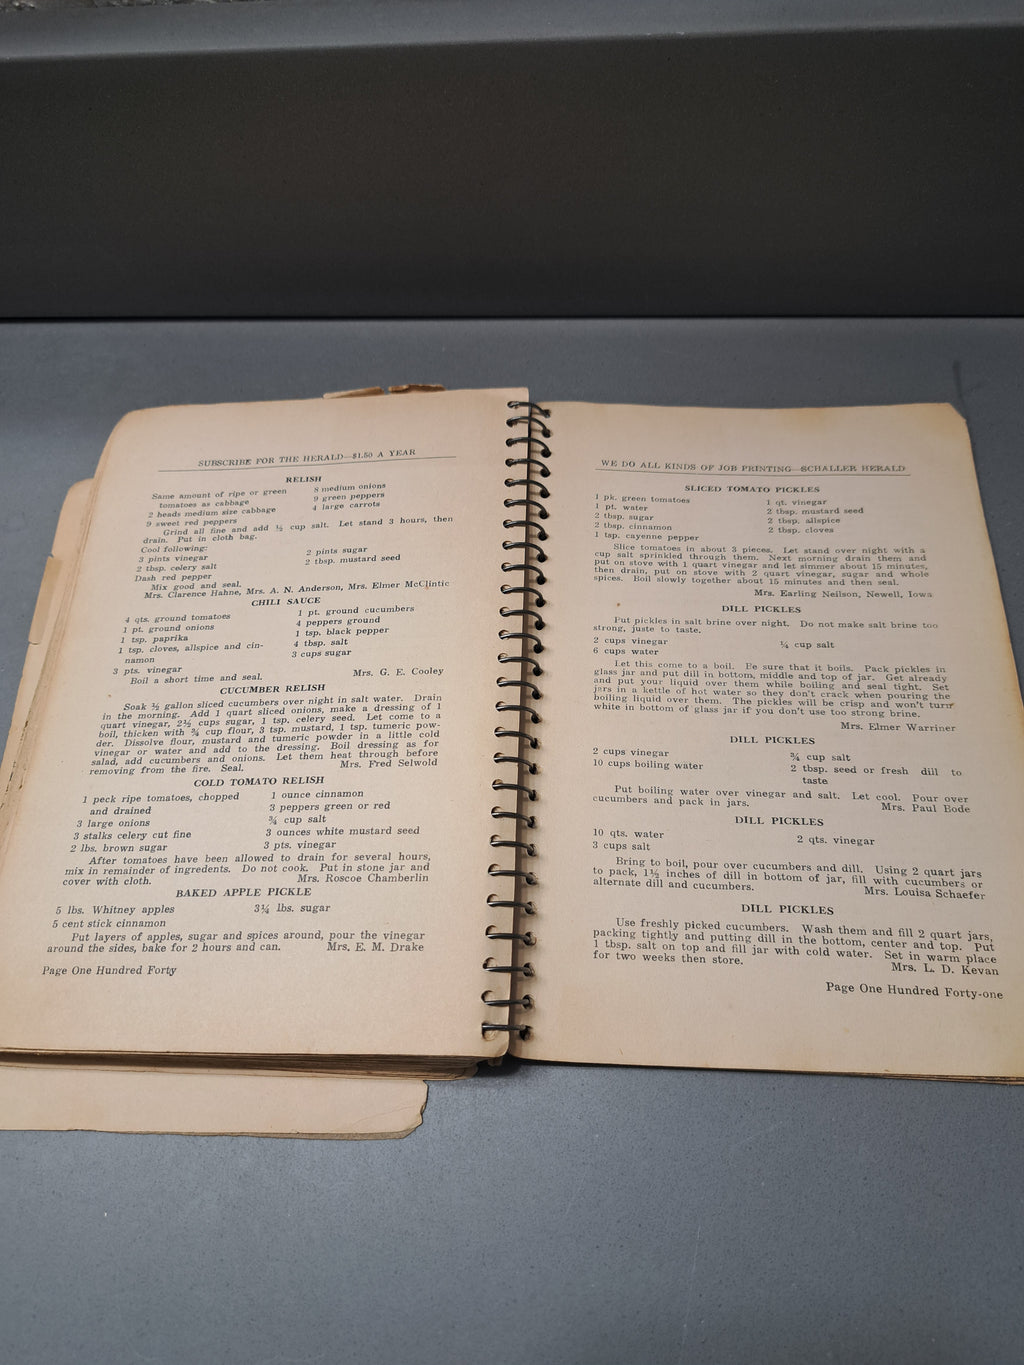 SUBSCRIBE FOR THE HERALD—$1.50 A YEAR
RELISH
Same amount of ripe or green
tomatoes as cabbage
2 heads medium size cabbage
9 sweet red peppers
8 medium onions
9 green peppers
4 large carrots
Grind all fine and add ½ cup salt. Let stand 3 hours, then
drain. Put in cloth bag.
Cool following:
3 pints vinegar
2 tbsp. celery salt
Dash red pepper
2 pints sugar
2 tbsp. mustard seed
Mix good and seal.
Mrs. Clarence Hahne, Mrs. A. N. Anderson, Mrs. Elmer McClintic
CHILI SAUCE
4 qts. ground tomatoes
1 pt. ground onions
1 tsp. paprika
1 tsp. cloves, allspice and cin-
namon
3 pts. vinegar
1 pt. ground cucumbers
4 peppers ground
1 tsp. black pepper
4 tbsp. salt
3 cups sugar
Boil a short time and seal.
Mrs. G. E. Cooley
CUCUMBER RELISH
Soak ½ gallon sliced cucumbers over night in salt water. Drain
in the morning. Add 1 quart sliced onions, make a dressing of 1
quart vinegar, 2½ cups sugar, 1 tsp. celery seed. Let come to a
boil, thicken with ¾ cup flour, 3 tsp. mustard, 1 tsp. tumeric pow-
der. Dissolve flour, mustard and tumeric powder in a little cold
vinegar or water and add to the dressing. Boil dressing as for
salad, add cucumbers and onions. Let them heat through before
removing from the fire. Seal. Mrs. Fred Selwold
COLD TOMATO RELISH
1 peck ripe tomatoes, chopped
and drained
3 large onions
3 stalks celery cut fine
2 lbs. brown sugar
1 ounce cinnamon
3 peppers green or red
¾ cup salt
3 ounces white mustard seed
3 pts. vinegar
After tomatoes have been allowed to drain for several hours,
mix in remainder of ingredents. Do not cook. Put in stone jar and
cover with cloth. Mrs. Roscoe Chamberlin
BAKED APPLE PICKLE
5 lbs. Whitney apples
5 cent stick cinnamon
3¼ lbs. sugar
Put layers of apples, sugar and spices around, pour the vinegar
around the sides, bake for 2 hours and can. Mrs. E. M. Drake
Page One Hundred Forty
WE DO ALL KINDS OF JOB PRINTING—SCHALLER HERALD
SLICED TOMATO PICKLES
1 pk. green tomatoes
1 pt. water
2 tbsp. sugar
2 tbsp. cinnamon
1 tsp. cayenne pepper
1 qt. vinegar
2 tbsp. mustard seed
2 tbsp. allspice
2 tbsp. cloves
Slice tomatoes in about 3 pieces. Let stand over night with a
cup salt sprinkled through them. Next morning drain them and
put on stove with 1 quart vinegar and let simmer about 15 minutes,
then drain, put on stove with 2 quart vinegar, sugar and whole
spices. Boil slowly together about 15 minutes and then seal.
Mrs. Earling Neilson, Newell, Iowa
DILL PICKLES
Put pickles in salt brine over night. Do not make salt brine too
strong, juste to taste.
2 cups vinegar
6 cups water
¼ cup salt
Let this come to a boil. Be sure that it boils. Pack pickles in
glass jar and put dill in bottom, middle and top of jar. Get already
and put your liquid over them while boiling and seal tight. Set
jars in a kettle of hot water so they don't crack when pouring the
boiling liquid over them. The pickles will be crisp and won't turn
white in bottom of glass jar if you don't use too strong brine.
Mrs. Elmer Warriner
DILL PICKLES
2 cups vinegar
10 cups boiling water
¾ cup salt
2 tbsp. seed or fresh dill to
taste
Put boiling water over vinegar and salt. Let cool. Pour over
cucumbers and pack in jars. Mrs. Paul Bode
DILL PICKLES
10 qts. water
3 cups salt
2 qts. vinegar
Bring to boil, pour over cucumbers and dill. Using 2 quart jars
to pack, 1½ inches of dill in bottom of jar, fill with cucumbers or
alternate dill and cucumbers. Mrs. Louisa Schaefer
DILL PICKLES
Use freshly picked cucumbers. Wash them and fill 2 quart jars,
packing tightly and putting dill in the bottom, center and top. Put
1 tbsp. salt on top and fill jar with cold water. Set in warm place
for two weeks then store. Mrs. L. D. Kevan
Page One Hundred Forty-one